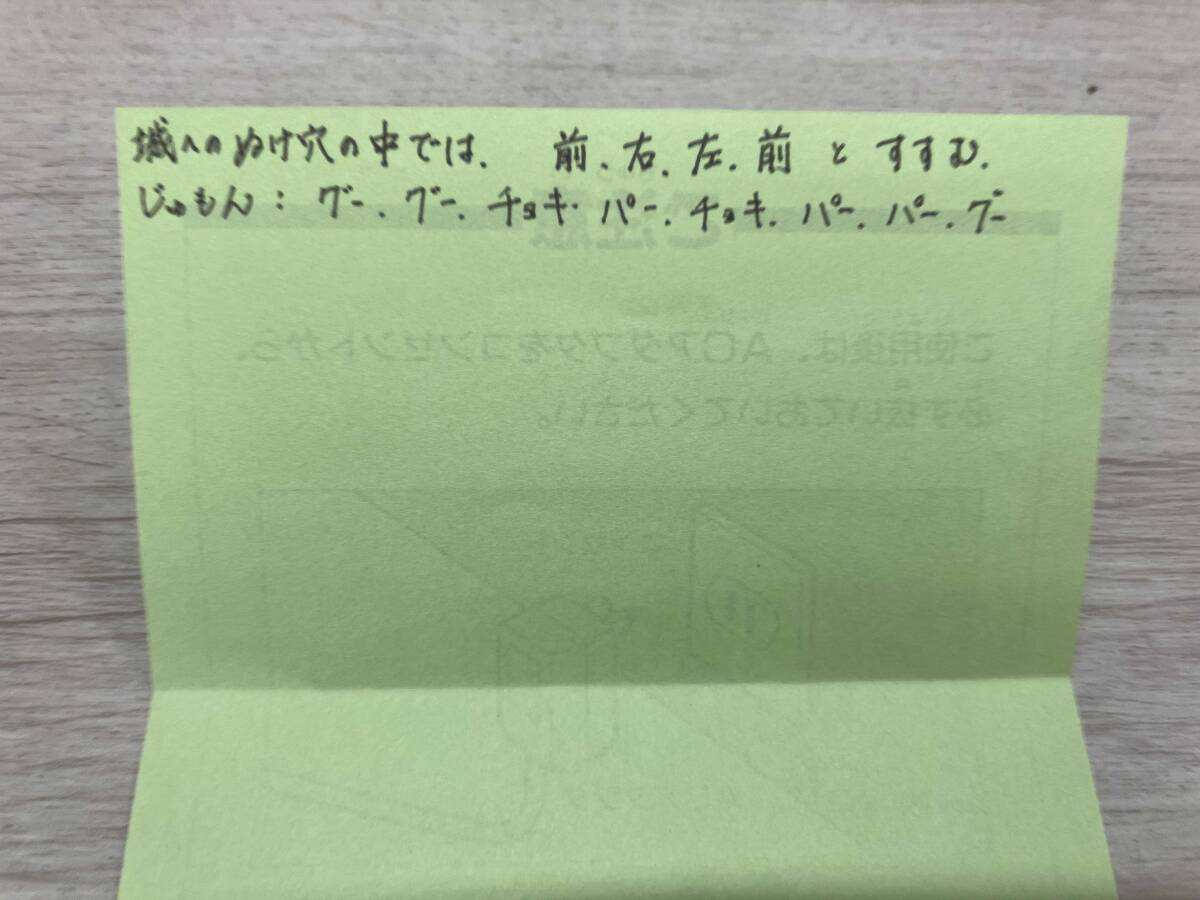 城へのぬけ穴の中では、 前、右、左、前 と すすむ.
じゅもん: グー、グー、チョキ、パー、チョキ、パー、パー、グー
ご注意
ご使用後は、ACアダプタをコンセントから、
必ず抜いておいてください。